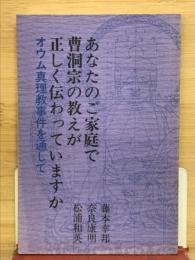 あなたのご家庭で
曹洞宗の教えが
正しく伝わっていますか
オウム真理教事件を通して
藤本幸邦
奈良康明
松浦和英